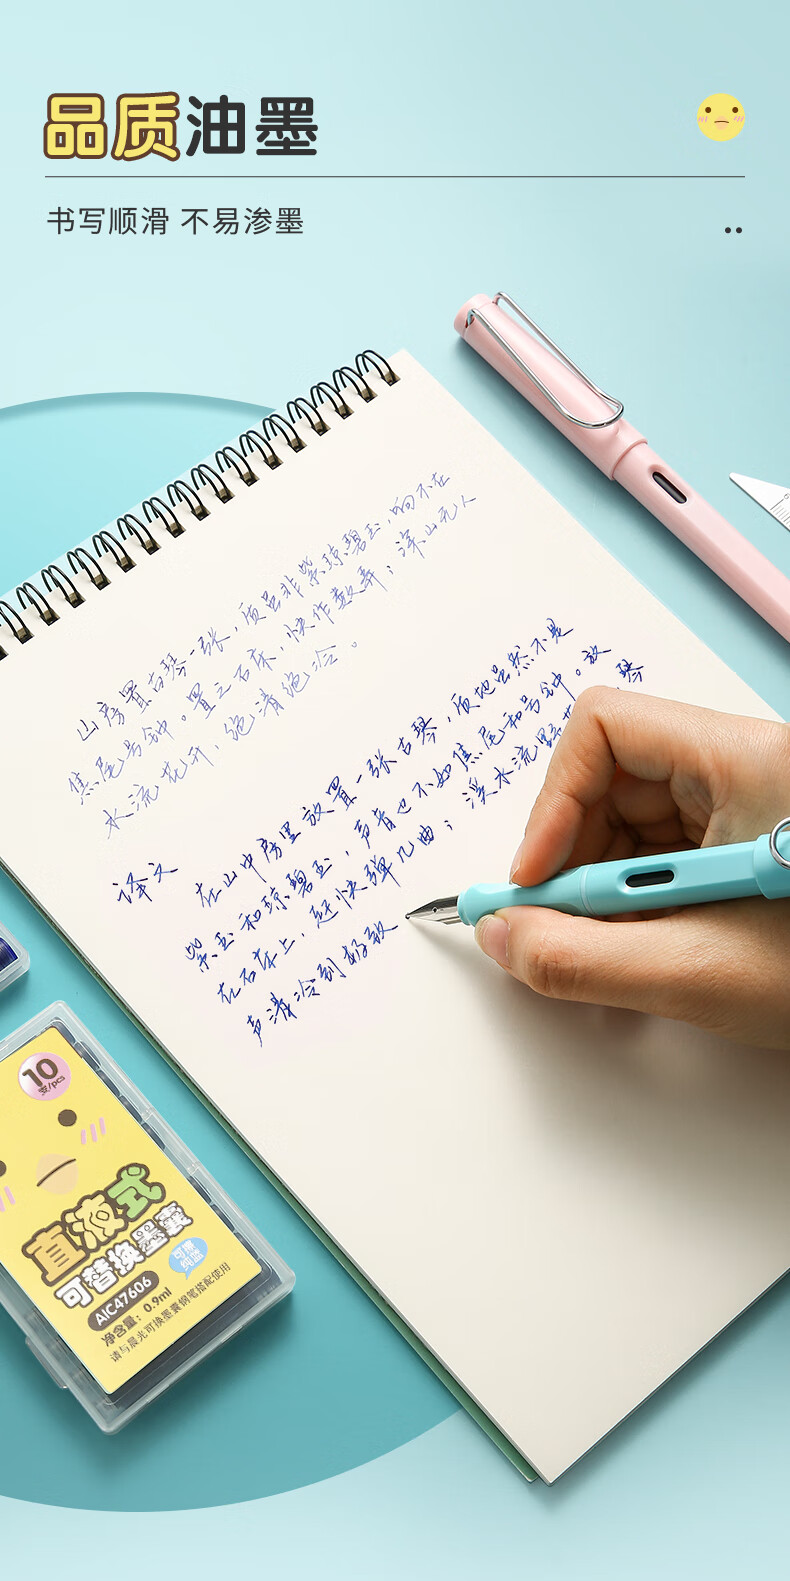 品质油墨
书写顺滑 不易渗墨
山房置古琴一张，质虽非紫琼碧玉，响不在
焦尾号钟。置之石床，快作数弄；深山无人
水流花开，绝清绝冷。
译文
在山中房里放置一张古琴，质地虽然不是
紫玉和琼碧玉，声音也不如焦尾和号钟。放
在石床上，赶快弹几曲；溪水流野花 琴
声清冷到极致
10
支/pcs
直液式
可替换墨囊
可擦
纯蓝
AIC47606
净含量：0.9ml
请与晨光可换墨囊钢笔搭配使用